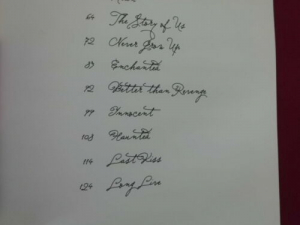 64 The Story of Us
72 Never Grow Up
83 Enchanted
92 Better than Revenge
99 Innocent
108 Haunted
114 Last Kiss
124 Long Live